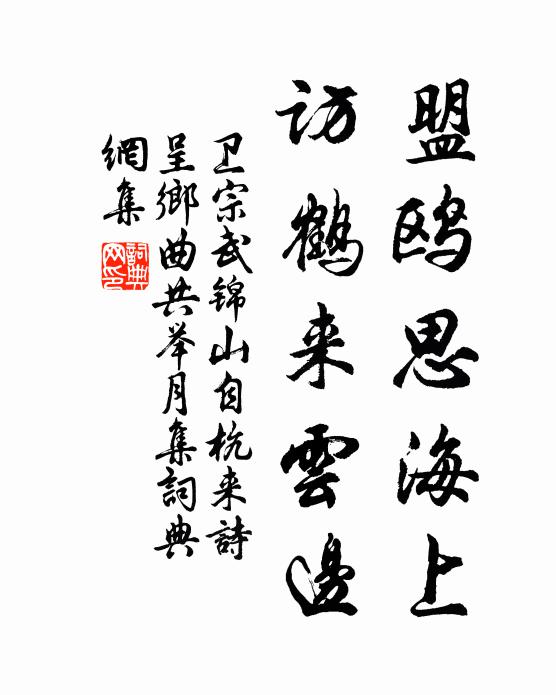 盟鸥思海上
访鹤来雲邊
卫宗武锦山自杭来詩
呈鄉曲共举月集詞典
網集
詞典网印